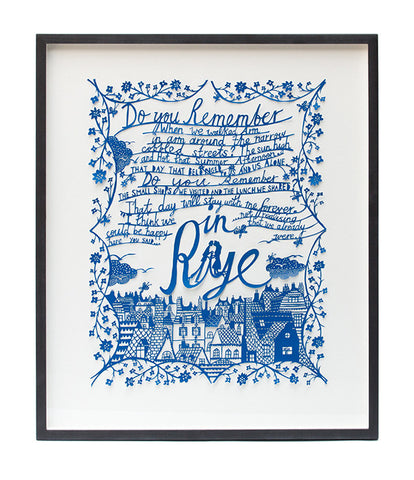 Do you Remember
When we walked Arm
in arm around the narrow
cobbled streets? The sun high
and Hot that Summer Afternoon
THAT DAY THAT BELONGED TO US AND US ALONE
Do you Remember
THE SMALL SHOPS WE VISITED AND THE LUNCH WE SHARED
That day will stay with me forever
I think we
could be happy
here YOU SAID
not realising
that we already
were
in
Rye